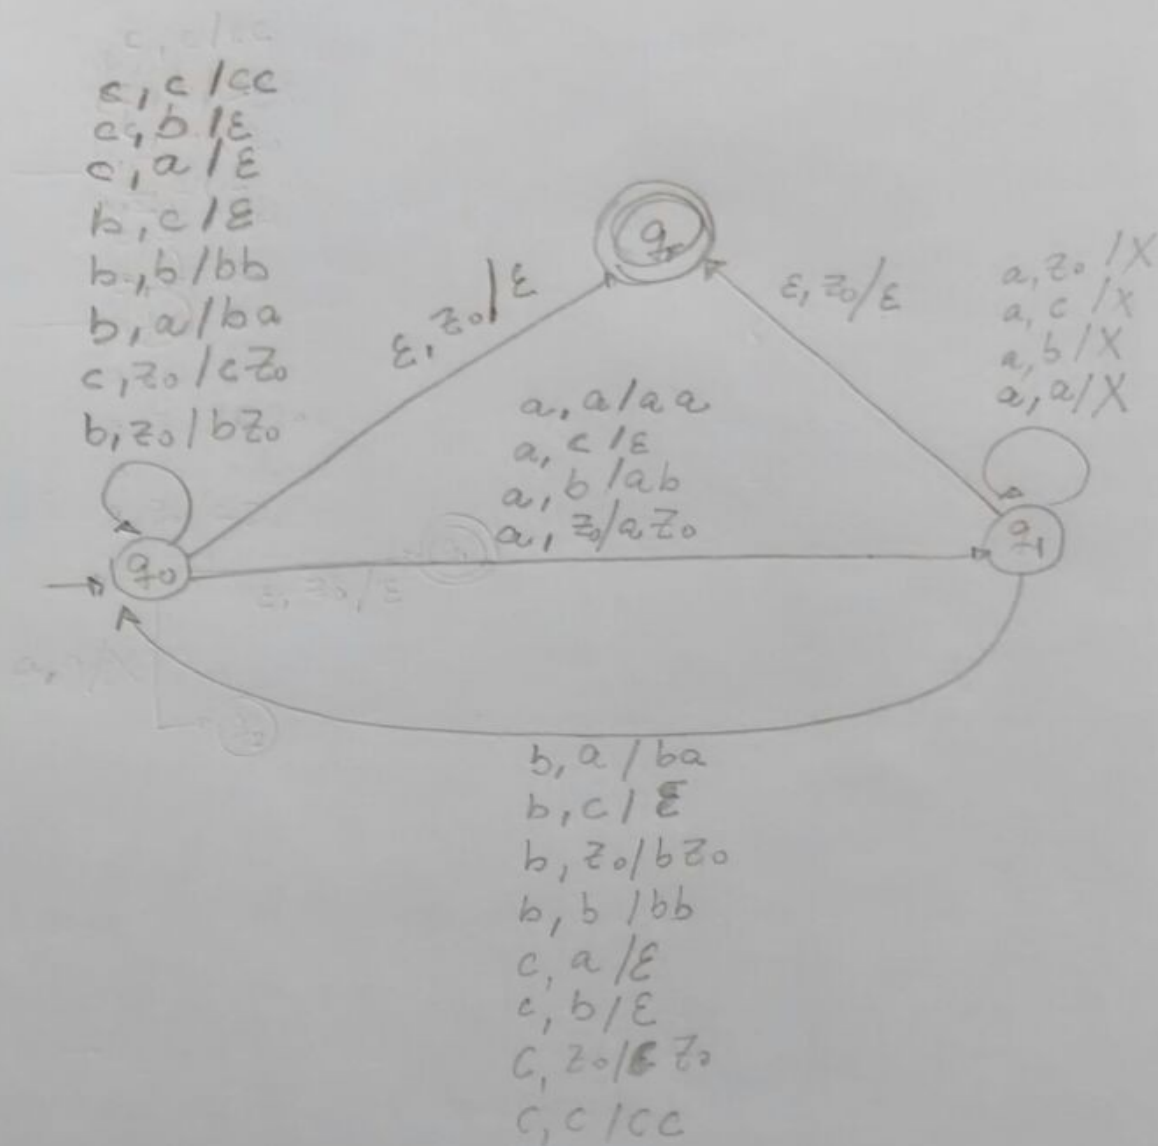 c, c / cc
c, c / cc
c, b / ε
c, a / ε
b, c / ε
b, b / bb
b, a / ba
c, z₀ / cz₀
b, z₀ / bz₀
ε, z₀ / ε
ε, z₀ / ε
a, z₀ / X
a, c / X
a, b / X
a, a / X
a, a / aa
a, c / ε
a, b / ab
a, z₀ / az₀
q₀
q₁
ε, z₀ / ε
b, a / ba
b, c / ε
b, z₀ / bz₀
b, b / bb
c, a / ε
c, b / ε
c, z₀ / c z₀
c, c / cc